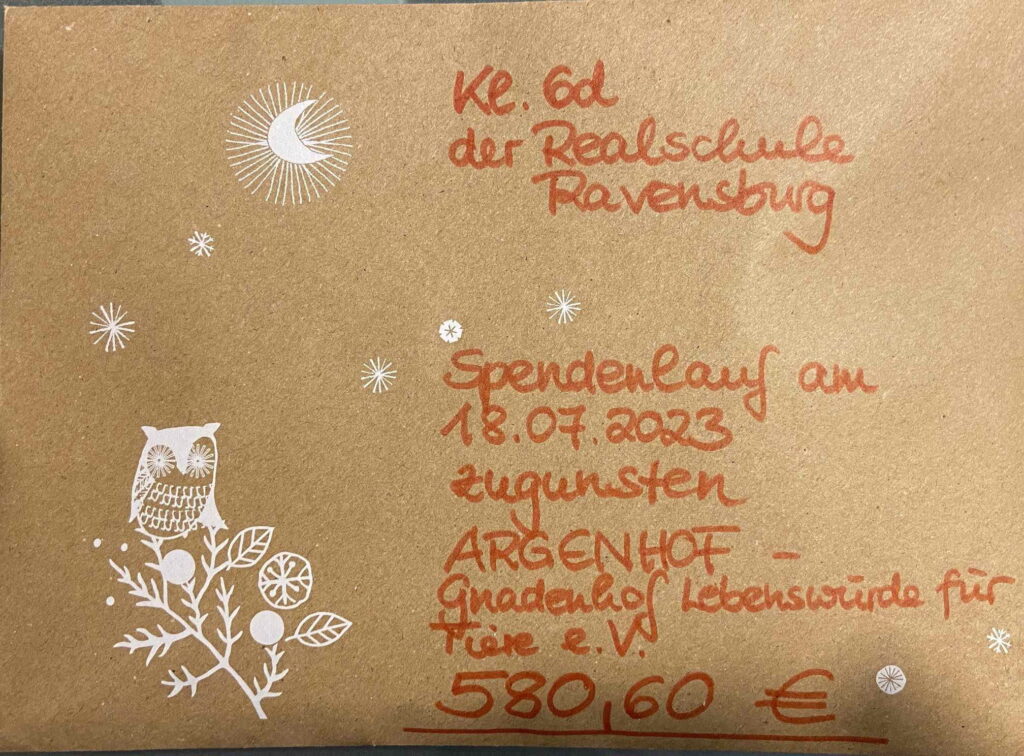 Kl. 6d
der Realschule
Ravensburg
Spendenlauf am
18.07.2023
zugunsten
ARGENHOF -
Gnadenhof Lebenswürde für
Tiere e.V.
580,60 €